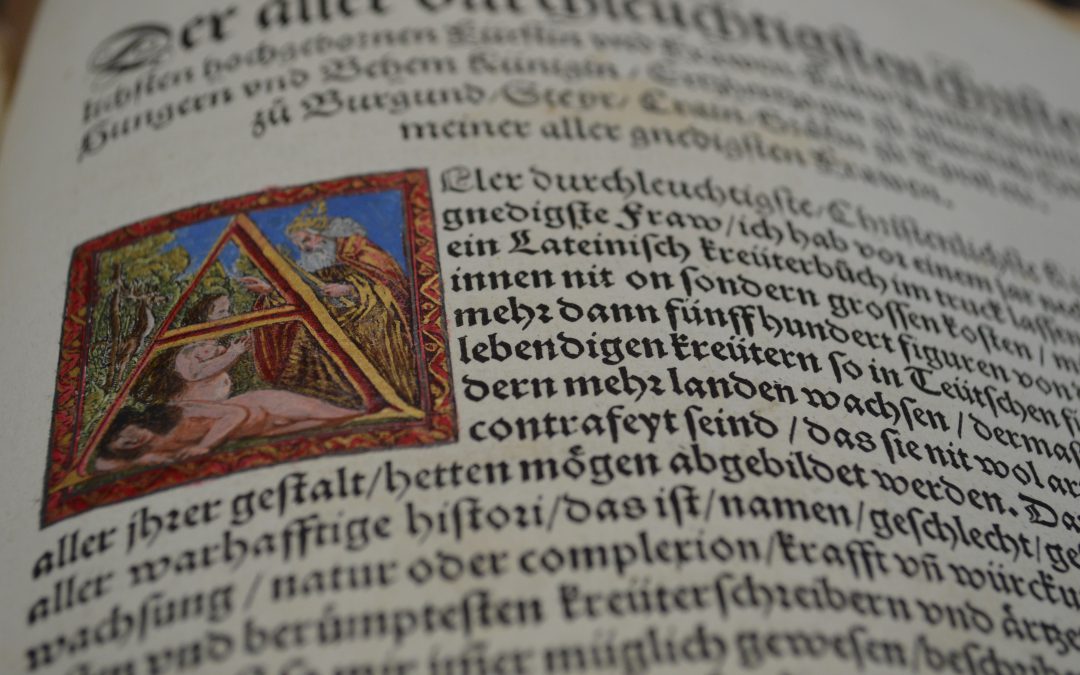 Der aller durchleuchtigſten Chriſten
lichſten hochgebornen Fürſtin vnd Frawen
Hungern vnd Behem Künigin / Ertzhertzogin zů
zů Burgund / Steyr / Crain / Gräfin zů Tyrol etc.
meiner aller gnedigſten Frawen.
ALler durchleuchtigſte / Chriſtenlichſte
gnedigſte Fraw / ich hab vor einem jar
ein Lateiniſch kreüterbůch im truck laſſen
innen nit on ſondern groſſen koſten / mi
mehr dann fünff hundert figuren von
lebendigen kreütern ſo in Teütſchen
dern mehr landen wachſen / dermaſ
contrafeyt ſeind / das ſie nit wol
aller jhrer geſtalt / hetten mögen abgebildet werden. Da
aller warhafftige hiſtori / das iſt / namen / geſchlecht / ge
wachſung / natur oder complexion / krafft vñ würcku
vnd berümpteſten kreüterſchreibern vnd ärtze
ſo mir im̃er müglich geweſen / beſchrib